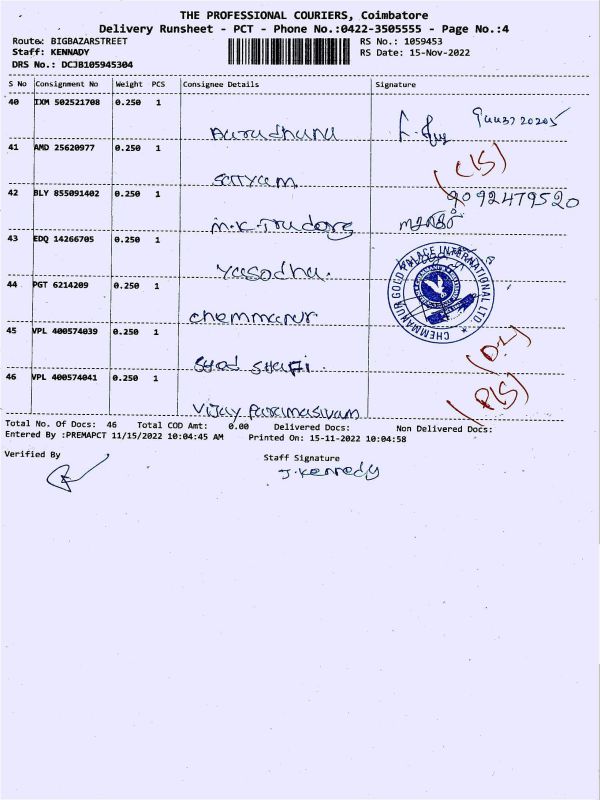 THE PROFESSIONAL COURIERS, Coimbatore
Delivery Runsheet - PCT - Phone No.:0422-3505555 - Page No.:4
Route: BIGBAZARSTREET
RS No.: 1059453
Staff: KENNADY
RS Date: 15-Nov-2022
DRS No.: DCJB105945304
S No Consignment No Weight PCS Consignee Details Signature
40 IXM 502521708 0.250 1
9442720205
41 AMD 25620977 0.250 1
Sattyam
(CIS)
42 BLY 855091402 0.250 1
9092479520
M.K.
43 EDQ 14266705 0.250 1
Yasodha.
44 PGT 6214209 0.250 1
CHEMMANUR GOLD PALACE INTERNATIONAL LTD.
chemmanur
45 VPL 400574039 0.250 1
Syed Shafi.
(D.L)
46 VPL 400574041 0.250 1
Vijay Paramasivam
(PIS)
Total No. Of Docs: 46 Total COD Amt: 0.00 Delivered Docs: Non Delivered Docs:
Entered By :PREMAPCT 11/15/2022 10:04:45 AM Printed On: 15-11-2022 10:04:58
Verified By
Staff Signature
J. Kennedy